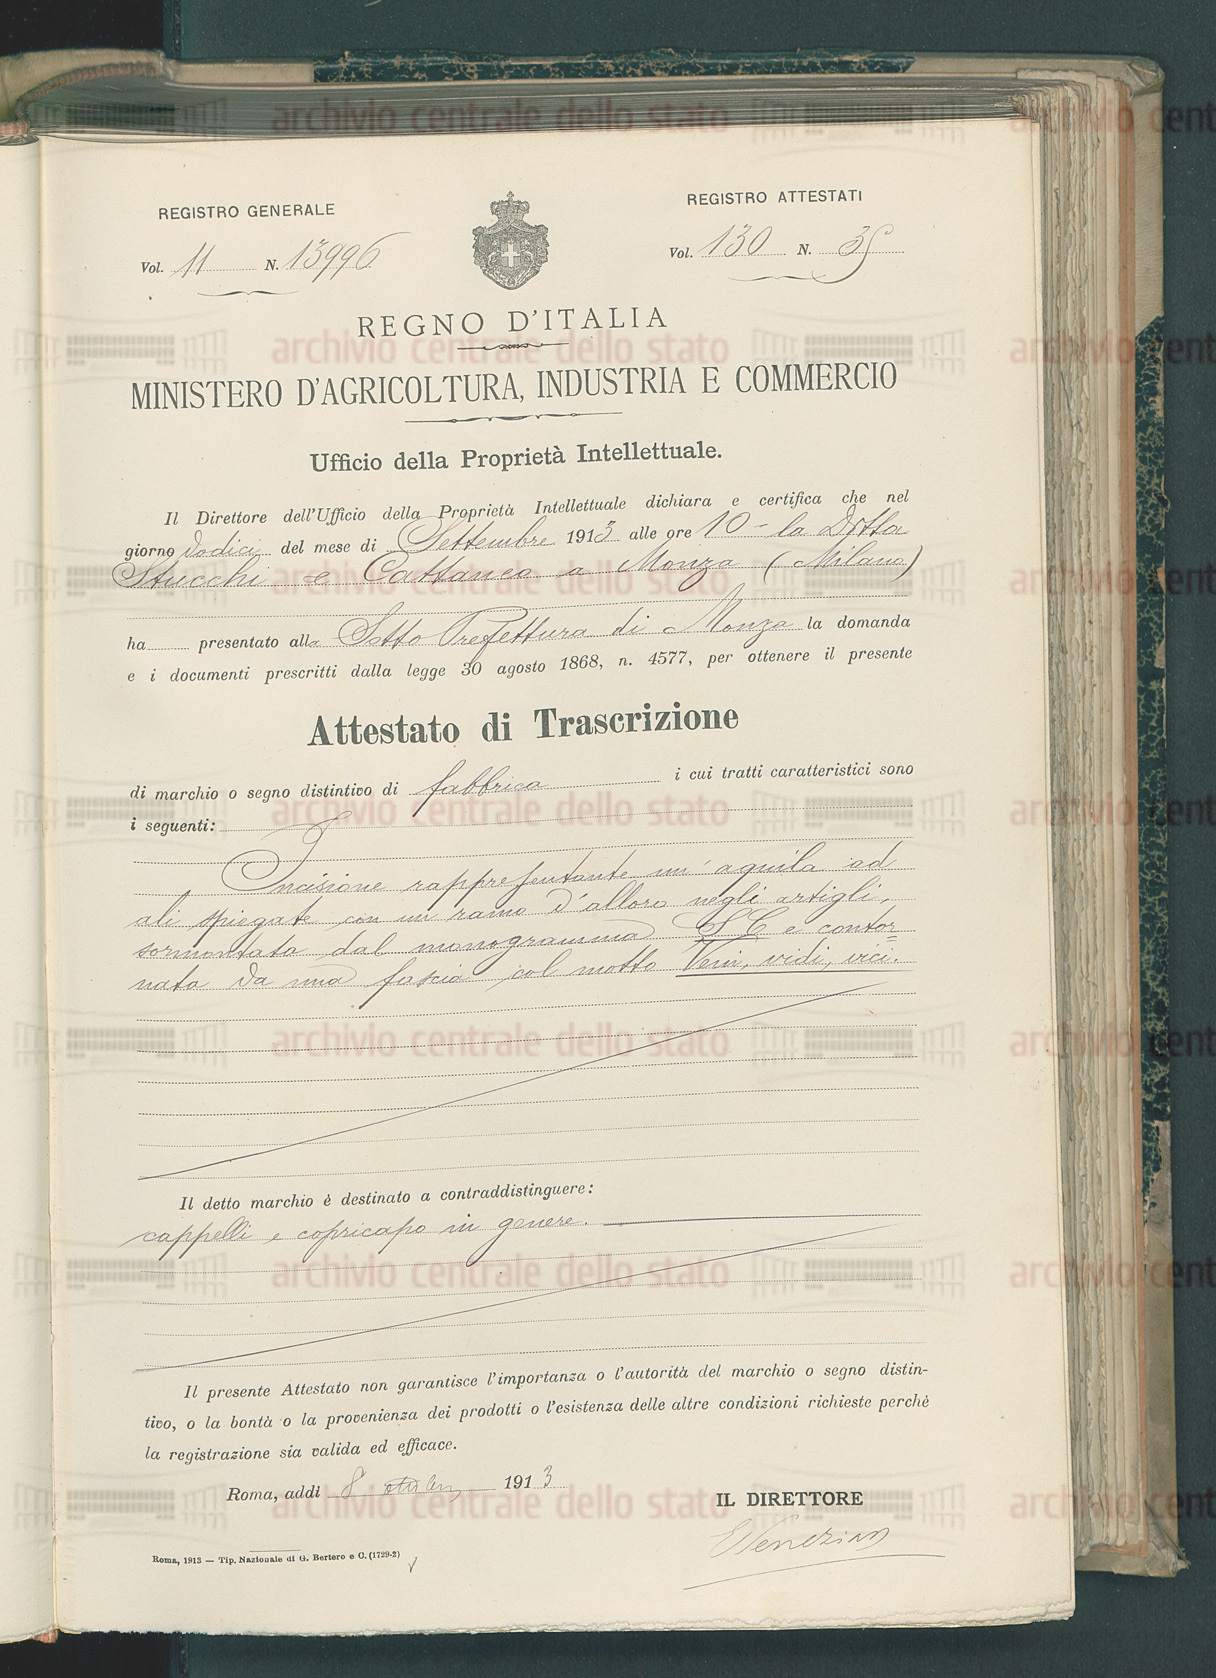 REGISTRO GENERALE
Vol. 11 N. 13996
REGISTRO ATTESTATI
Vol. 130 N. 35
REGNO D'ITALIA
MINISTERO D'AGRICOLTURA, INDUSTRIA E COMMERCIO
Ufficio della Proprietà Intellettuale.
Il Direttore dell'Ufficio della Proprietà Intellettuale dichiara e certifica che nel
giorno dodici del mese di Settembre 1913 alle ore 10 - la Ditta
Stucchi e Cattaneo a Monza (Milano)
ha presentato alla Sotto Prefettura di Monza la domanda
e i documenti prescritti dalla legge 30 agosto 1868, n. 4577, per ottenere il presente
Attestato di Trascrizione
di marchio o segno distintivo di fabbrica i cui tratti caratteristici sono
i seguenti:
Incisione rappresentante un'aquila ad
ali spiegate con un ramo d'alloro negli artigli,
sormontata dal monogramma S C e contor=
nata da una fascia col motto Veni, vidi, vici.
Il detto marchio è destinato a contraddistinguere:
cappelli e copricapo in genere.
Il presente Attestato non garantisce l'importanza o l'autorità del marchio o segno distin-
tivo, o la bontà o la provenienza dei prodotti o l'esistenza delle altre condizioni richieste perchè
la registrazione sia valida ed efficace.
Roma, addì 8 ottobre 1913
IL DIRETTORE
Venezian
Roma, 1913 — Tip. Nazionale di G. Bertero e C. (1729-2)
archivio centrale dello stato